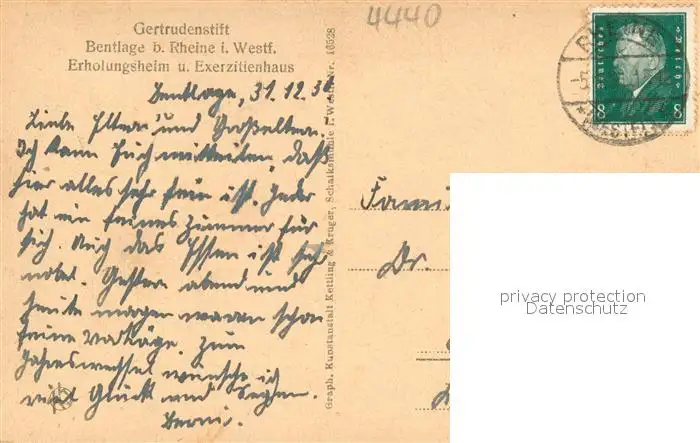 4440
Gertrudenstift
Bentlage b. Rheine i. Westf.
Erholungsheim u. Exerzitienhaus
Bentlage, 31.12.30
Liebe Eltern und Großeltern.
Ich kann Euch mitteilen, daß
hier alles sehr fein ist. Jeder
hat ein feines Zimmer für
sich. Auch das Essen ist sehr
nobel. Gestern abend und
heute morgen waren schon
feine Vorträge. Zum
Jahreswechsel wünsche ich
viel Glück und Segen.
Berni.
Graph. Kunstanstalt Kettling & Krüger, Schalksmühle i. Westf. Nr. 16528
Deutsches Reich
8 8
RHEINE
Fami
Dr.
privacy protection
Datenschutz